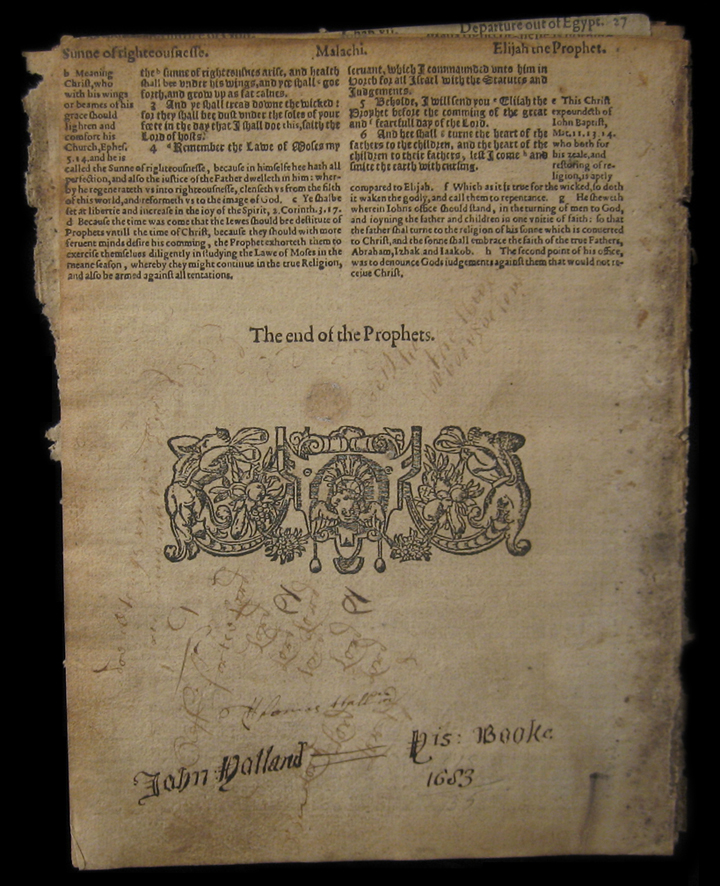 Departure out of Egypt. 27
Sunne of righteousnesse. Malachi. Elijah the Prophet.
b Meaning
Christ, who
with his wings
or beames of his
grace should
lighten and
comfort his
Church, Ephes.
5.14. and he is
the b Sunne of righteousnes arise, and health
shall bee vnder his wings, and yee shall c goe
forth, and grow vp as fat calues.
3 And ye shall tread downe the wicked:
for they shall bee dust vnder the soles of your
feete in the day that I shall doe this, saith the
Lord of hosts.
4 d Remember the Lawe of Moses my
called the Sunne of righteousnesse, because in himselfe hee hath all
perfection, and also the iustice of the Father dwelleth in him: wher-
by he regenerateth vs into righteousnesse, clenseth vs from the filth
of this world, and reformeth vs to the image of God. c Ye shalbe
set at libertie and increase in the ioy of the Spirit, 2. Corinth. 3. 17.
d Because the time was come that the Iewes should bee destitute of
Prophets vntill the time of Christ, because they should with more
feruent minds desire his comming, the Prophet exhorteth them to
exercise themselues diligently in studying the Lawe of Moses in the
meane season, whereby they might continue in the true Religion,
and also be armed against all tentations.
seruant, which I commanded vnto him in
Horeb for all Israel with the Statutes and
Iudgements.
5 Beholde, I will send you e Eliiah the
Prophet before the comming of the great
and f fearefull day of the Lord.
6 And hee shall g turne the heart of the
fathers to the children, and the heart of the
children to their fathers, lest I come h and
smite the earth with cursing.
e This Christ
expoundeth of
Iohn Baptist,
Mat. 11. 13, 14.
who both for
his zeale, and
restoring of re-
ligion, is aptly
compared to Elijah. f Which as it is true for the wicked, so doth
it waken the godly, and call them to repentance. g He sheweth
wherein Iohns office should stand, in the turning of men to God,
and ioyning the father and children in one vnitie of faith: so that
the father shal turne to the religion of his sonne which is conuerted
to Christ, and the sonne shall embrace the faith of the true Fathers,
Abraham, Izhak and Iaakob. h The second point of his office,
was to denounce Gods iudgements against them that would not re-
ceiue Christ.
The end of the Prophets.
Thomas Hall
John Holland His: Booke
1683